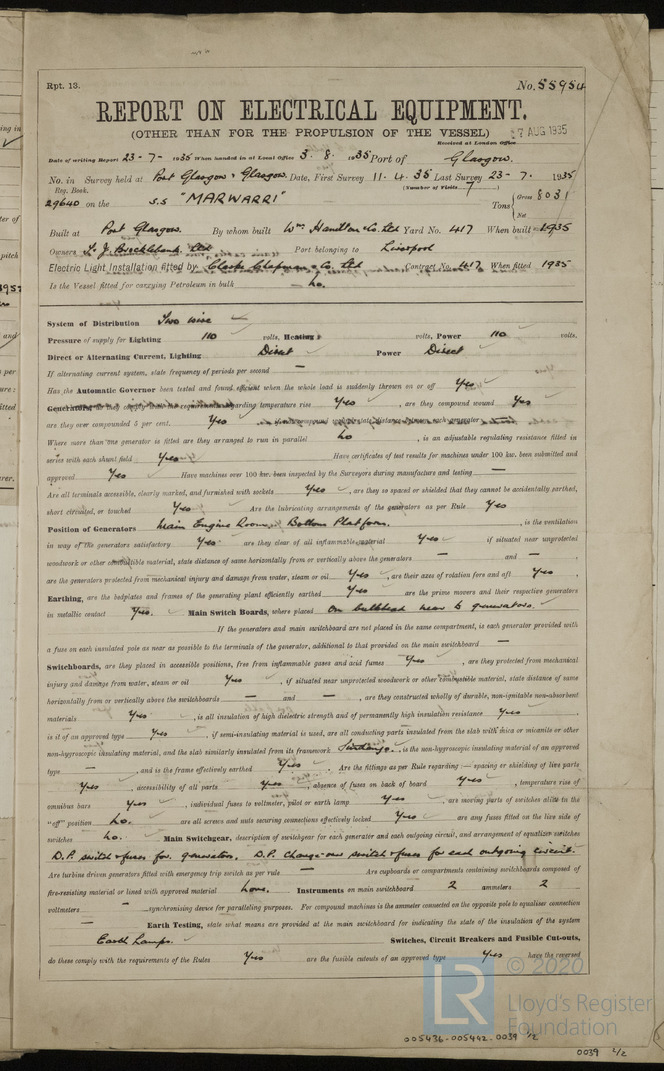 Rpt. 13. No. 55954
REPORT ON ELECTRICAL EQUIPMENT.
(OTHER THAN FOR THE PROPULSION OF THE VESSEL)
7 AUG 1935
Received at London Office
Date of writing Report 23-7-1935 When handed in at Local Office 3.8.1935 Port of Glasgow.
No. in Survey held at Port Glasgow & Glasgow. Date, First Survey 11.4.35 Last Survey 23-7-1935
Reg. Book. (Number of Visits 7)
29640 on the S.S "MARWARRI" Tons Gross 8031
Net
Built at Port Glasgow. By whom built Wm. Hamilton & Co. Ltd Yard No. 417 When built 1935
Owners T. J. Brocklebank Ltd Port belonging to Liverpool
Electric Light Installation fitted by Clarke Chapman & Co. Ltd Contract No. 417 When fitted 1935
Is the Vessel fitted for carrying Petroleum in bulk no.
System of Distribution Two wire
Pressure of supply for Lighting 110 volts, Heating volts, Power 110 volts.
Direct or Alternating Current, Lighting Direct Power Direct
If alternating current system, state frequency of periods per second —
Has the Automatic Governor been tested and found efficient when the whole load is suddenly thrown on or off Yes
Generators regarding temperature rise Yes, are they compound wound Yes
are they over compounded 5 per cent. Yes
Where more than one generator is fitted are they arranged to run in parallel no, is an adjustable regulating resistance fitted in
series with each shunt field Yes Have certificates of test results for machines under 100 kw. been submitted and
approved Yes Have machines over 100 kw. been inspected by the Surveyors during manufacture and testing —
Are all terminals accessible, clearly marked, and furnished with sockets Yes, are they so spaced or shielded that they cannot be accidentally earthed,
short circuited, or touched Yes Are the lubricating arrangements of the generators as per Rule Yes
Position of Generators Main Engine Room, Bottom Platform., is the ventilation
in way of the generators satisfactory Yes are they clear of all inflammable material Yes if situated near unprotected
woodwork or other combustible material, state distance of same horizontally from or vertically above the generators — and —,
are the generators protected from mechanical injury and damage from water, steam or oil Yes, are their axes of rotation fore and aft Yes,
Earthing, are the bedplates and frames of the generating plant efficiently earthed Yes are the prime movers and their respective generators
in metallic contact Yes. Main Switch Boards, where placed On bulkhead near to generators.
If the generators and main switchboard are not placed in the same compartment, is each generator provided with
a fuse on each insulated pole as near as possible to the terminals of the generator, additional to that provided on the main switchboard —
Switchboards, are they placed in accessible positions, free from inflammable gases and acid fumes Yes, are they protected from mechanical
injury and damage from water, steam or oil Yes, if situated near unprotected woodwork or other combustible material, state distance of same
horizontally from or vertically above the switchboards — and —, are they constructed wholly of durable, non-ignitable non-absorbent
materials Yes, is all insulation of high dielectric strength and of permanently high insulation resistance Yes,
is it of an approved type Yes, if semi-insulating material is used, are all conducting parts insulated from the slab with mica or micanite or other
non-hygroscopic insulating material, and the slab similarly insulated from its framework, is the non-hygroscopic insulating material of an approved
type —, and is the frame effectively earthed Yes. Are the fittings as per Rule regarding:— spacing or shielding of live parts
Yes, accessibility of all parts Yes, absence of fuses on back of board Yes, temperature rise of
omnibus bars Yes, individual fuses to voltmeter, pilot or earth lamp Yes, are moving parts of switches alive in the
"off" position no. are all screws and nuts securing connections effectively locked Yes are any fuses fitted on the live side of
switches no. Main Switchgear, description of switchgear for each generator and each outgoing circuit, and arrangement of equalizer switches
D.P. switch & fuses for generators. D.P. Change-over switch & fuses for each outgoing circuit.
Are turbine driven generators fitted with emergency trip switch as per rule — Are cupboards or compartments containing switchboards composed of
fire-resisting material or lined with approved material None. Instruments on main switchboard 2 ammeters 2
voltmeters - synchronising device for paralleling purposes. For compound machines is the ammeter connected on the opposite pole to equaliser connection
— Earth Testing, state what means are provided at the main switchboard for indicating the state of the insulation of the system
Earth Lamps. Switches, Circuit Breakers and Fusible Cut-outs,
do these comply with the requirements of the Rules Yes are the fusible cutouts of an approved type Yes have the reversed
LR © 2020
Lloyd's Register
Foundation
005436-005442-0039 1/2
0039 2/2